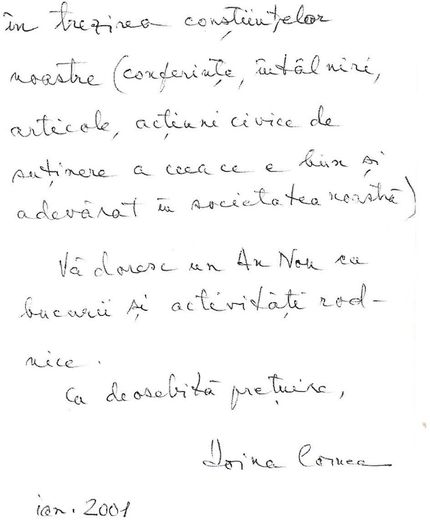 în trezirea conștiințelor
noastre (conferințe, întâlniri,
articole, acțiuni civice de
susținere a ceea ce e bun și
adevărat în societatea noastră)
Vă doresc un An Nou cu
bucurii și activități rod-
nice.
Cu deosebită prețuire,
Doina Cornea
ian. 2001